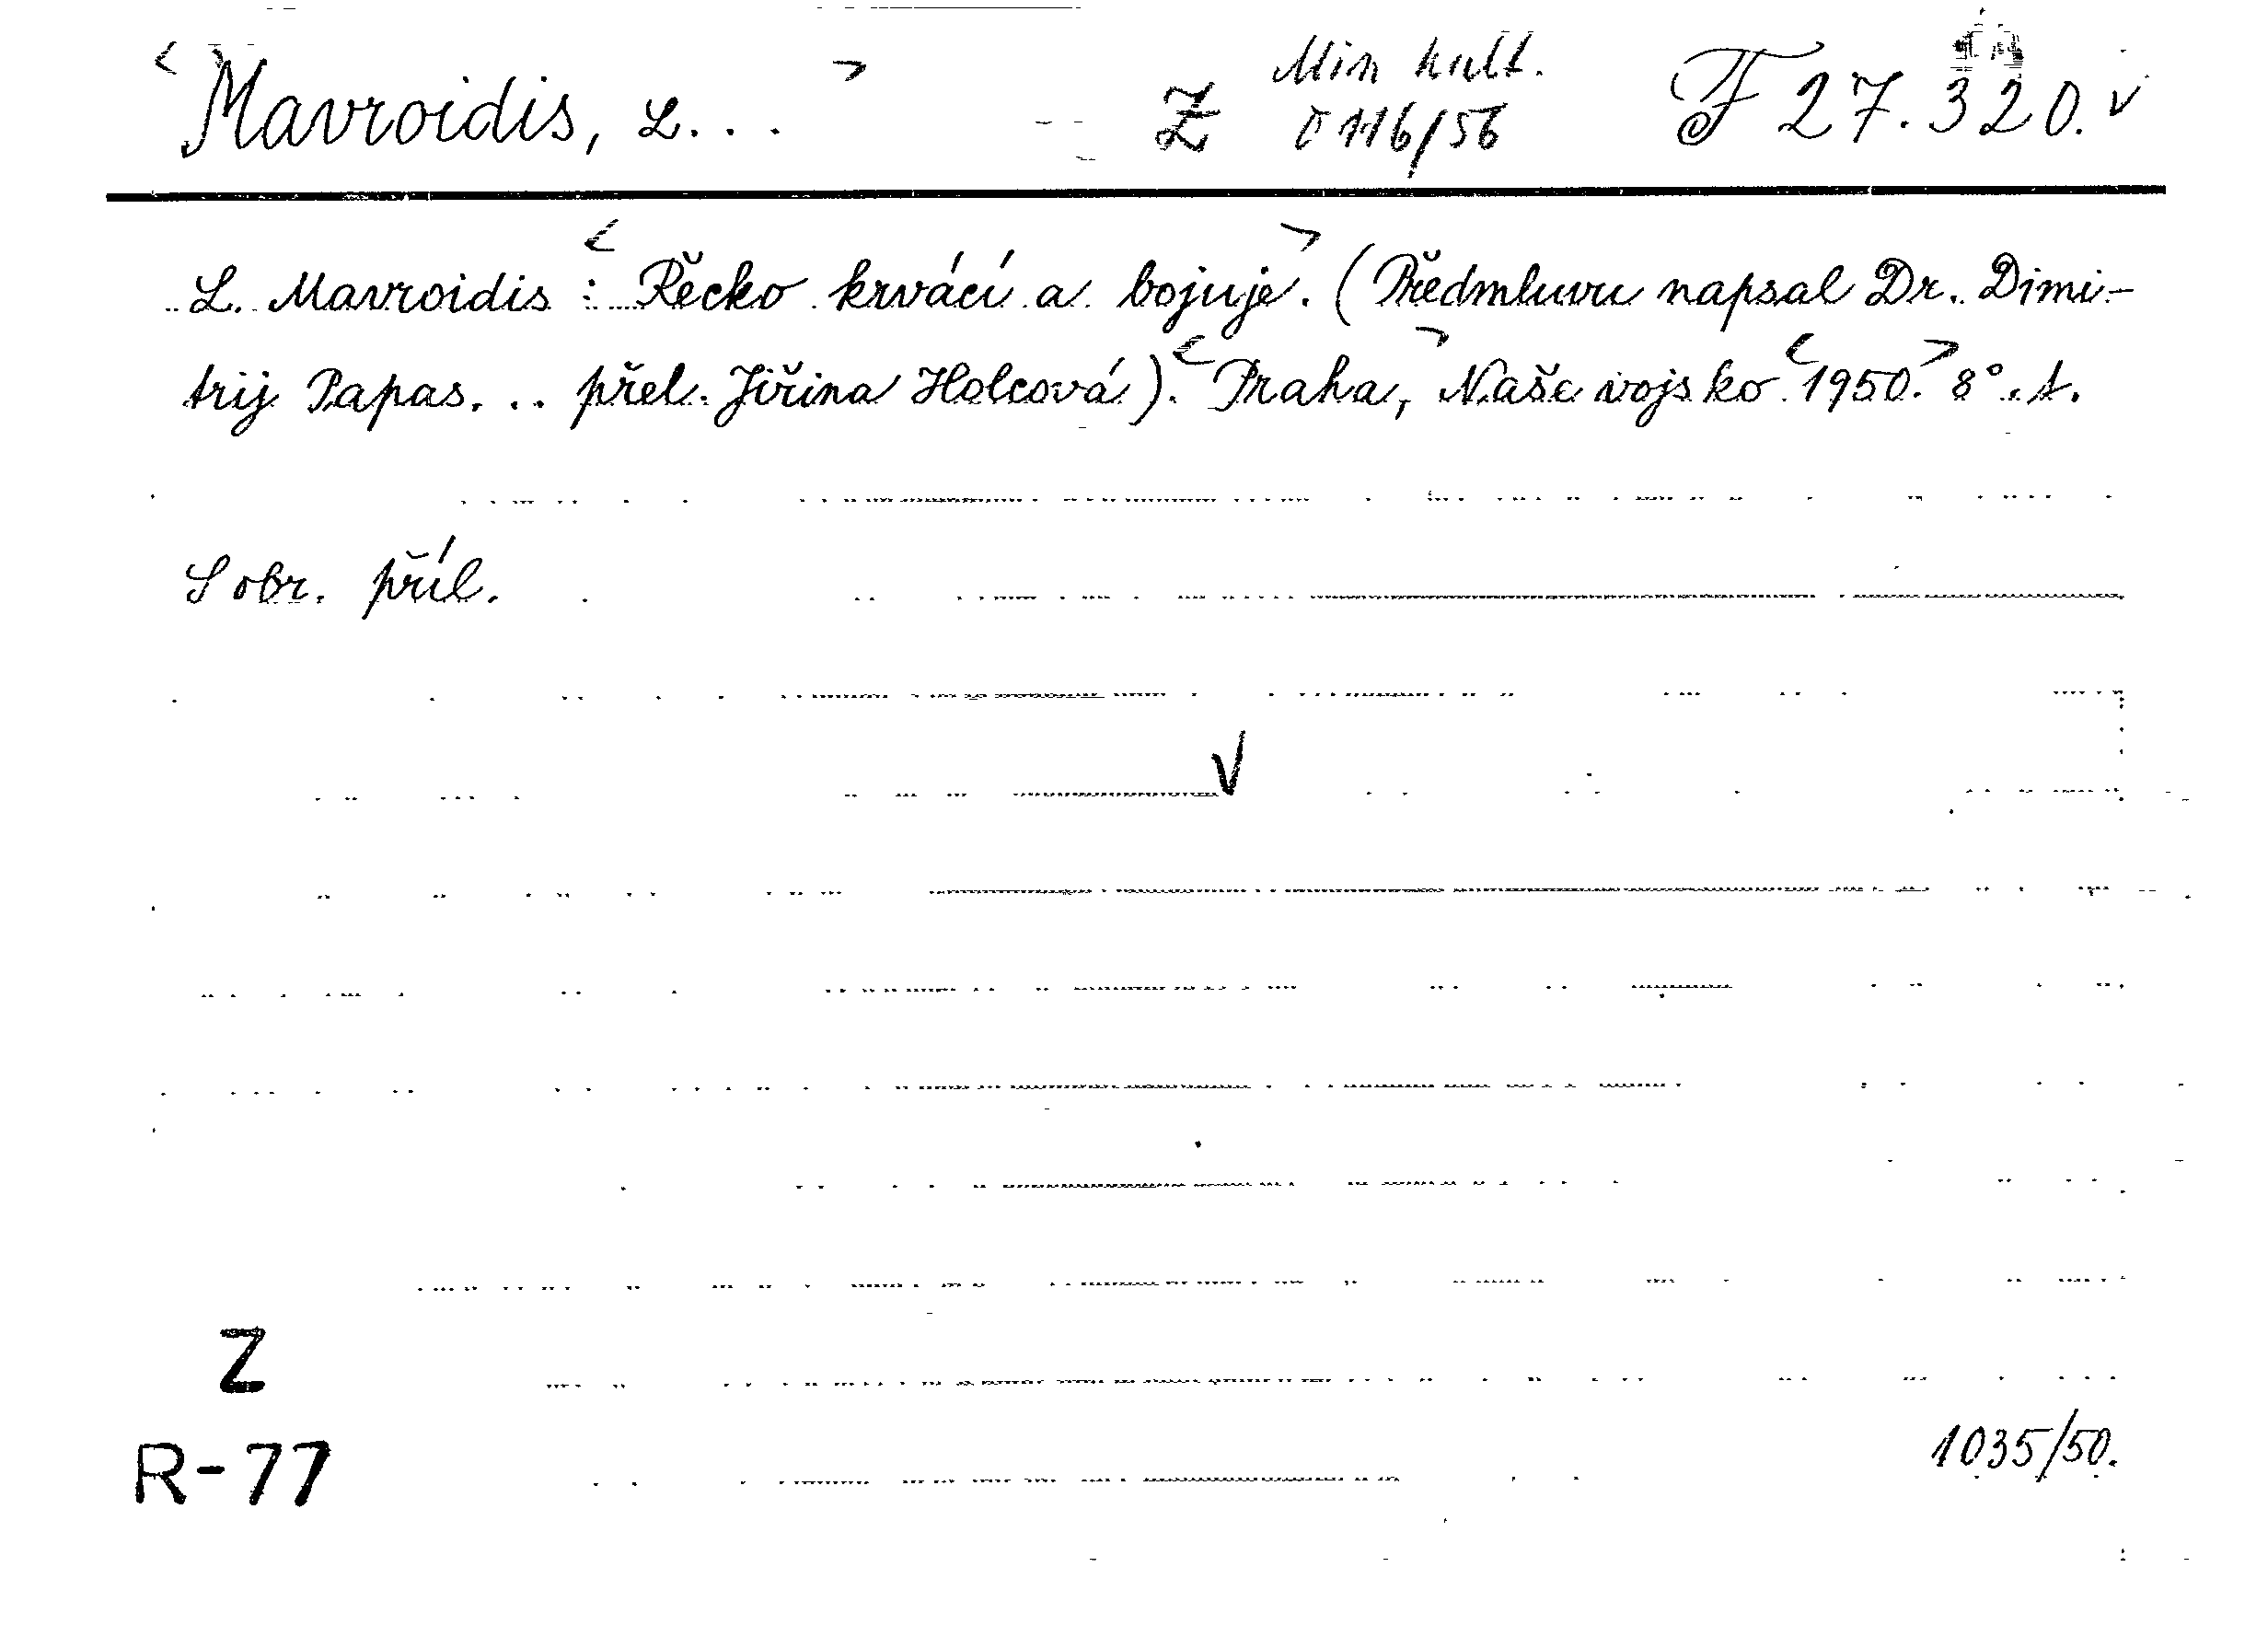 < Mavroidis, L... > Z Min kult. 0116/56 F 27.320. v
L. Mavroidis : < Řecko krvácí a bojuje. > (Předmluvu napsal Dr. Dimi-
trij Papas... přel. Jiřina Holcová). < Praha, > Naše vojsko < 1950. > 8°. t.
S obr. příl.
V
Z
R-77
1035/50.